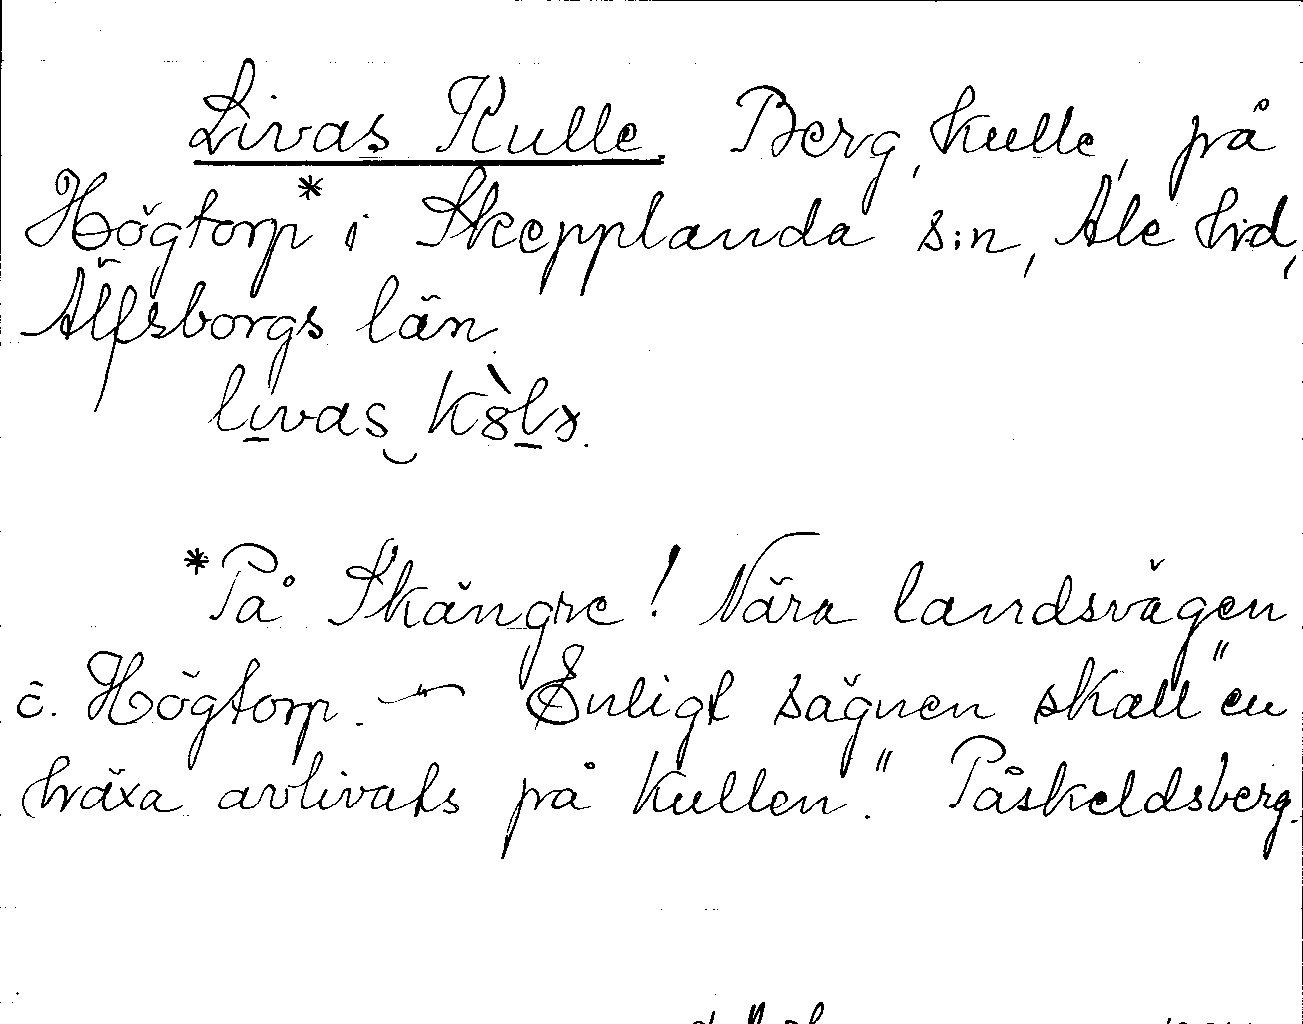 Livas Kulle. Berg, kulle, på
Högtorp* i Skepplanda s:n, Ale hrd,
Älfsborgs län.
livas
*På Skängre! Nära landsvägen
ö. Högtorp. — Enligt sägnen skall "en
häxa avlivats på kullen." Påskeldsberg.